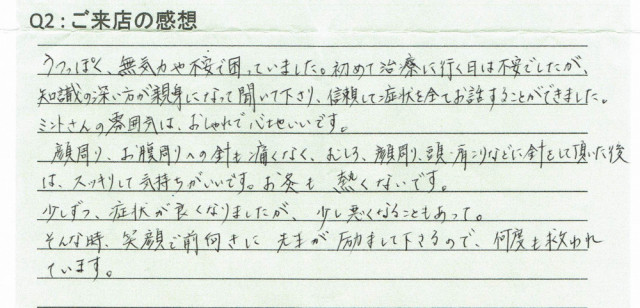 Q2：ご来店の感想
うつっぽく、無気力や不安で困っていました。初めて治療に行く日は不安でしたが、
知識の深い方が親身になって聞いて下さり、信頼して症状を全てお話することができました。
ミントさんの雰囲気は、おしゃれで心地いいです。
顔周り、お腹周りへの針も痛くなく、むしろ、顔周り、頭・肩こりなどに針をして頂いた後
は、スッキリして気持ちがいいです。お灸も熱くないです。
少しずつ、症状が良くなりましたが、少し悪くなることもあって。
そんな時、笑顔で前向きに先生が励まして下さるので、何度も救われ
ています。